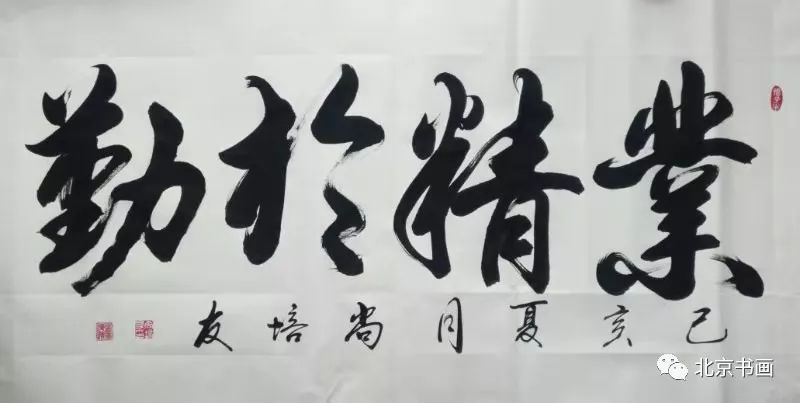 業精於勤
己亥夏月尚培友
北京书画